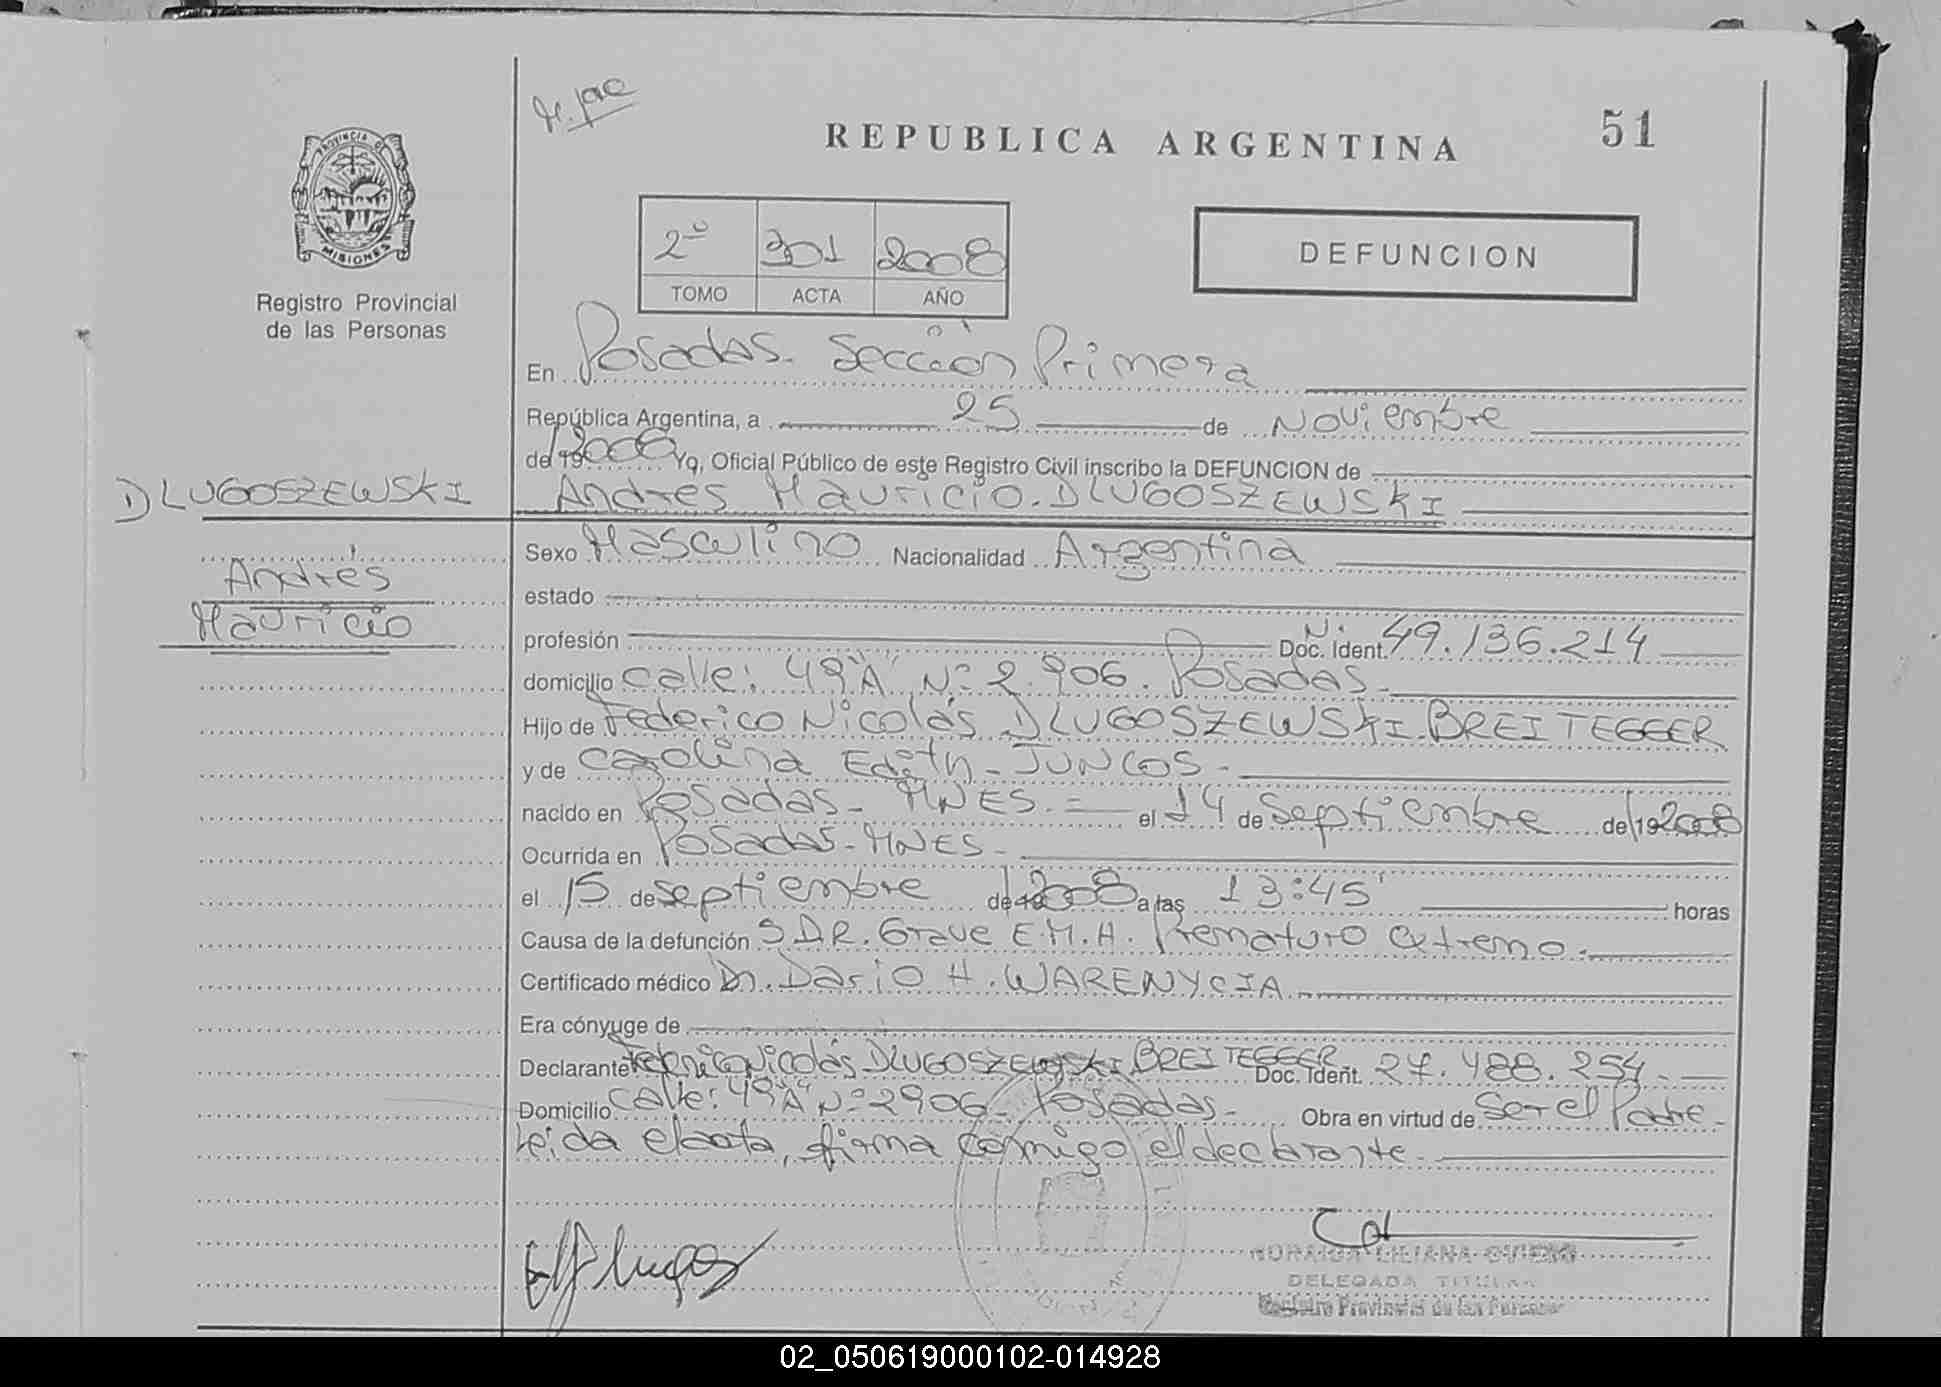 REPUBLICA ARGENTINA
51
PROVINCIA DE
MISIONES
Registro Provincial
de las Personas
2º 301 2008
TOMO ACTA AÑO
DEFUNCION
En Posadas. Sección Primera
República Argentina, a 25 de Noviembre
de 19 2008 Yo, Oficial Público de este Registro Civil inscribo la DEFUNCION de
DLUGOSZEWSKI
Andrés Mauricio. DLUGOSZEWSKI
Andrés
Mauricio
Sexo Masculino Nacionalidad Argentina
estado
profesión Doc. Ident. N. 49.136.214
domicilio calle: 49"A" Nº 2.906. Posadas.
Hijo de Federico Nicolás DLUGOSZEWSKI BREITEGGER
y de Carolina Edith - JUNCOS -
nacido en Posadas - MNES. = el 14 de septiembre de 19 2008
Ocurrida en Posadas - MNES -
el 15 de septiembre de 19 2008 a las 13:45' horas
Causa de la defunción S.D.R. Grave E.M.H. Prematuro extremo.
Certificado médico Dr. Dario H. WARENYCIA
Era cónyuge de
Declarante Federico Nicolás DLUGOSZEWSKI BREITEGGER Doc. Ident. 27.488.254.
Domicilio calle: 49"A" Nº 2906 - Posadas - Obra en virtud de ser el Padre -
Leida el acta, firma conmigo el declarante
LILIANA
DELEGADA TITULAR
Registro Provincial de las Personas
02_050619000102-014928